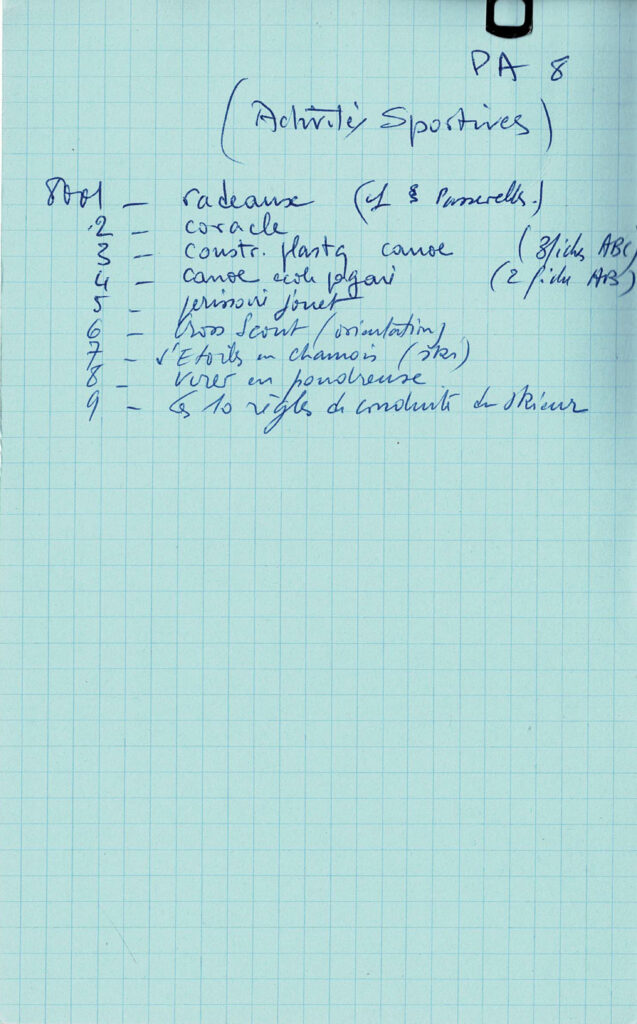 PA 8
(Activités Sportives)
8001 — radeaux (cf § Passerelles.)
2 — coracle
3 — constr. plastq canoe (3 fiches ABC)
4 — canoe école pagaïe (2 fiches AB)
5 — périssoire jouet
6 — Cross Scout (orientation)
7 — d'Etoiles en chamois (ski)
8 — virer en poudreuse
9 — Les 10 règles de conduite du skieur